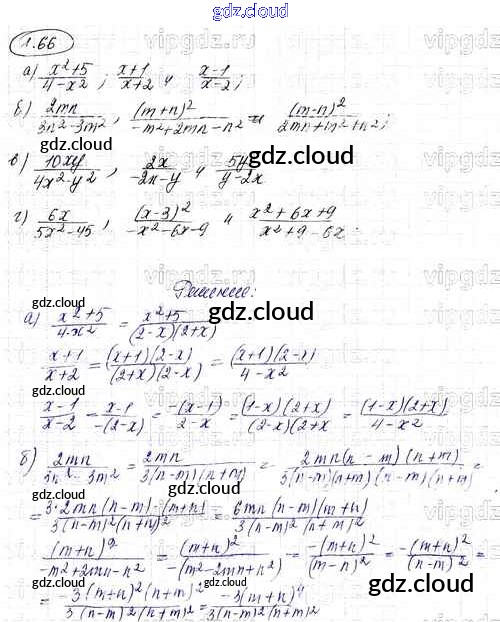 gdz.cloud
1.66
а) x²+5/4-x²; x+1/x+2 и x-1/x-2;
б) 2mn/3n²-3m², (m+n)²/-m²+2mn-n² и (m-n)²/2mn+m²+n²;
в) 10xy/4x²-y², 2x/-2x-y и 5y/y-2x
г) 6x/5x²-45, (x-3)²/-x²-6x-9 и x²+6x+9/x²+9-6x.
Решение:
а) x²+5/4-x² = x²+5/(2-x)(2+x)
x+1/x+2 = (x+1)(2-x)/(2+x)(2-x) = (x+1)(2-x)/4-x²
x-1/x-2 = x-1/-(2-x) = -(x-1)/2-x = (1-x)(2+x)/(2-x)(2+x = (1-x)(2+x)/4-x²
б) 2mn/3n²-3m² = 2mn/3(n-m)(n+m) = 2mn(n-m)(n+m)/3(n-m)(n+m)(n-m)(n+m) =
= 3·2mn(n-m)·(m+n)/3(n-m)²(n+n)² = 6mn(n-m)(m+n)/3(n-m)²(n+m)²
(m+n)²/-m²+2mn-n² = (m+n)²/-(m²-2mn+n²) = -(m+n)²/(m-n)² = -(m+n)²/(n-m)² =
= -3(m+n)²(n+m)²/3(n-m)²(n+m)² = -3(m+n)⁴/3(n-m)²(n+m)²